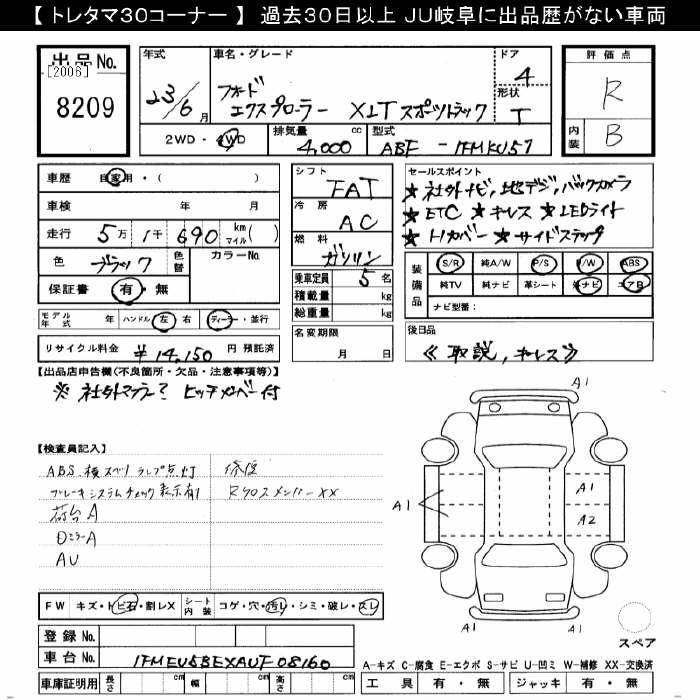 【 トレタマ30コーナー 】 過去30日以上 JU岐阜に出品歴がない車両
出品No. [2006] 8209
年式 23/6月
車名・グレード フォード エクスプローラー XLTスポーツトラック
ドア 4
形状 T
2WD・4WD 排気量 4,000 cc 型式 ABF - 1FMEU57
評価点 R
内装 B
車歴 自家用・( )
車検 年 月
走行 5万 1千 690 km マイル( )
色 ブラック 色替 カラーNo.
保証書 有・無
モデル年式 年 ハンドル 左 右 ディーラー・並行
リサイクル料金 ¥14,150 円 預託済
シフト FAT
冷房 AC
燃料 ガソリン
乗車定員 5名
積載量 kg
総重量 kg
名変期限 月 日
セールスポイント
★社外ナビ,地デジ,バックカメラ
★ETC ★キレス ★LEDライト
★トノカバー ★サイドステップ
装備品 S/R 純A/W P/S P/W ABS
純TV 純ナビ 革シート 社外ナビ エアB
ナビ型番:
後日品
《取説,キーレス》
【出品店申告欄(不良箇所・欠品・注意事項等)】
※社外マフラー? ヒッチメンバー付
【検査員記入】
ABS.横スベリランプ点灯 修復
ブレーキシステムチェック表示有り Rクロスメンバーxx
荷台A
DミラーA
AU
FW キズ・トビ石・割レX シート内装 コゲ・穴・汚レ・シミ・破レ・スレ
登録No.
車台No. 1FMEU5BEXAUF08160
車庫証明用 長さ cm 幅 cm 高さ cm
A1
A1
A1
A2
A1
スペア
A-キズ C-腐食 E-エクボ S-サビ U-凹ミ W-補修 XX-交換済
工具 有・無 ジャッキ 有・無